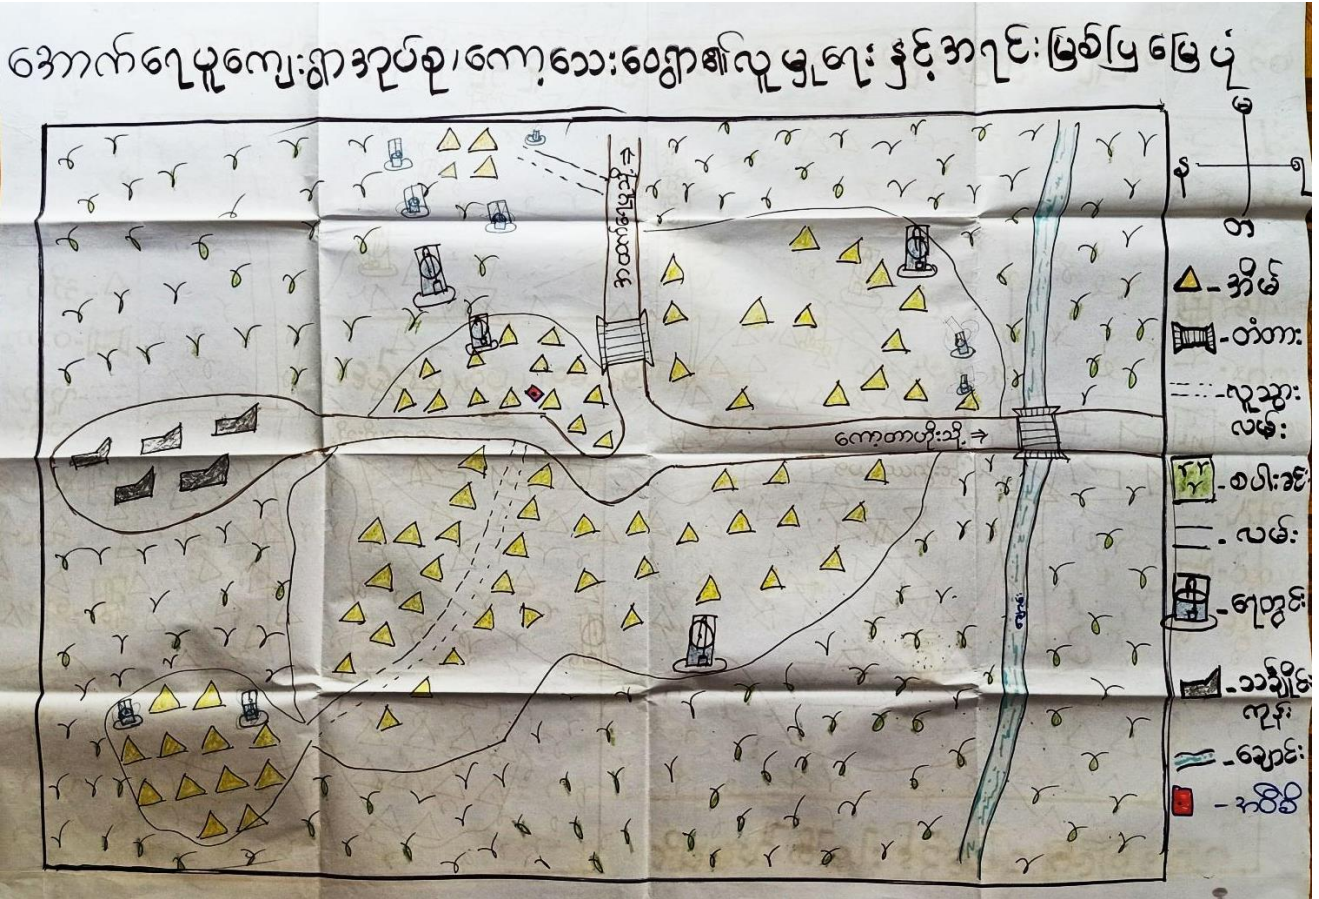 အောက်ရေပူကျေးရွာအုပ်စု၊ကော့သေးဝေရွာ၏လူမှုရေးနှင့်အရင်းမြစ်ပြမြေပုံ
မ
န
ရ
တ
ကော့တာဟိုးသို့ ⇒
- အိမ်
- တံတား
- လူသွား
လမ်း
- စပါးခင်း
- လမ်း
- ရေတွင်း
- သင်္ချိုင်း
ကုန်း
- ချောင်း
- အဝီစိ